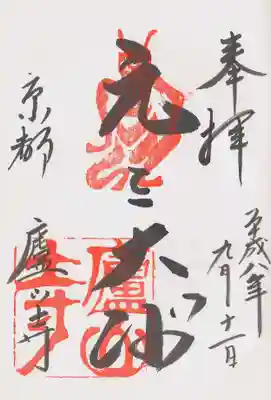 奉拝
平成八年
九月十一日
元三大师
京都
廬山寺